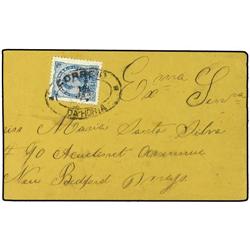 CORREIO
DA HORTA
Exma Snra
Maria Santa Silva
4 90 Acushnet Avenue
New Bedford